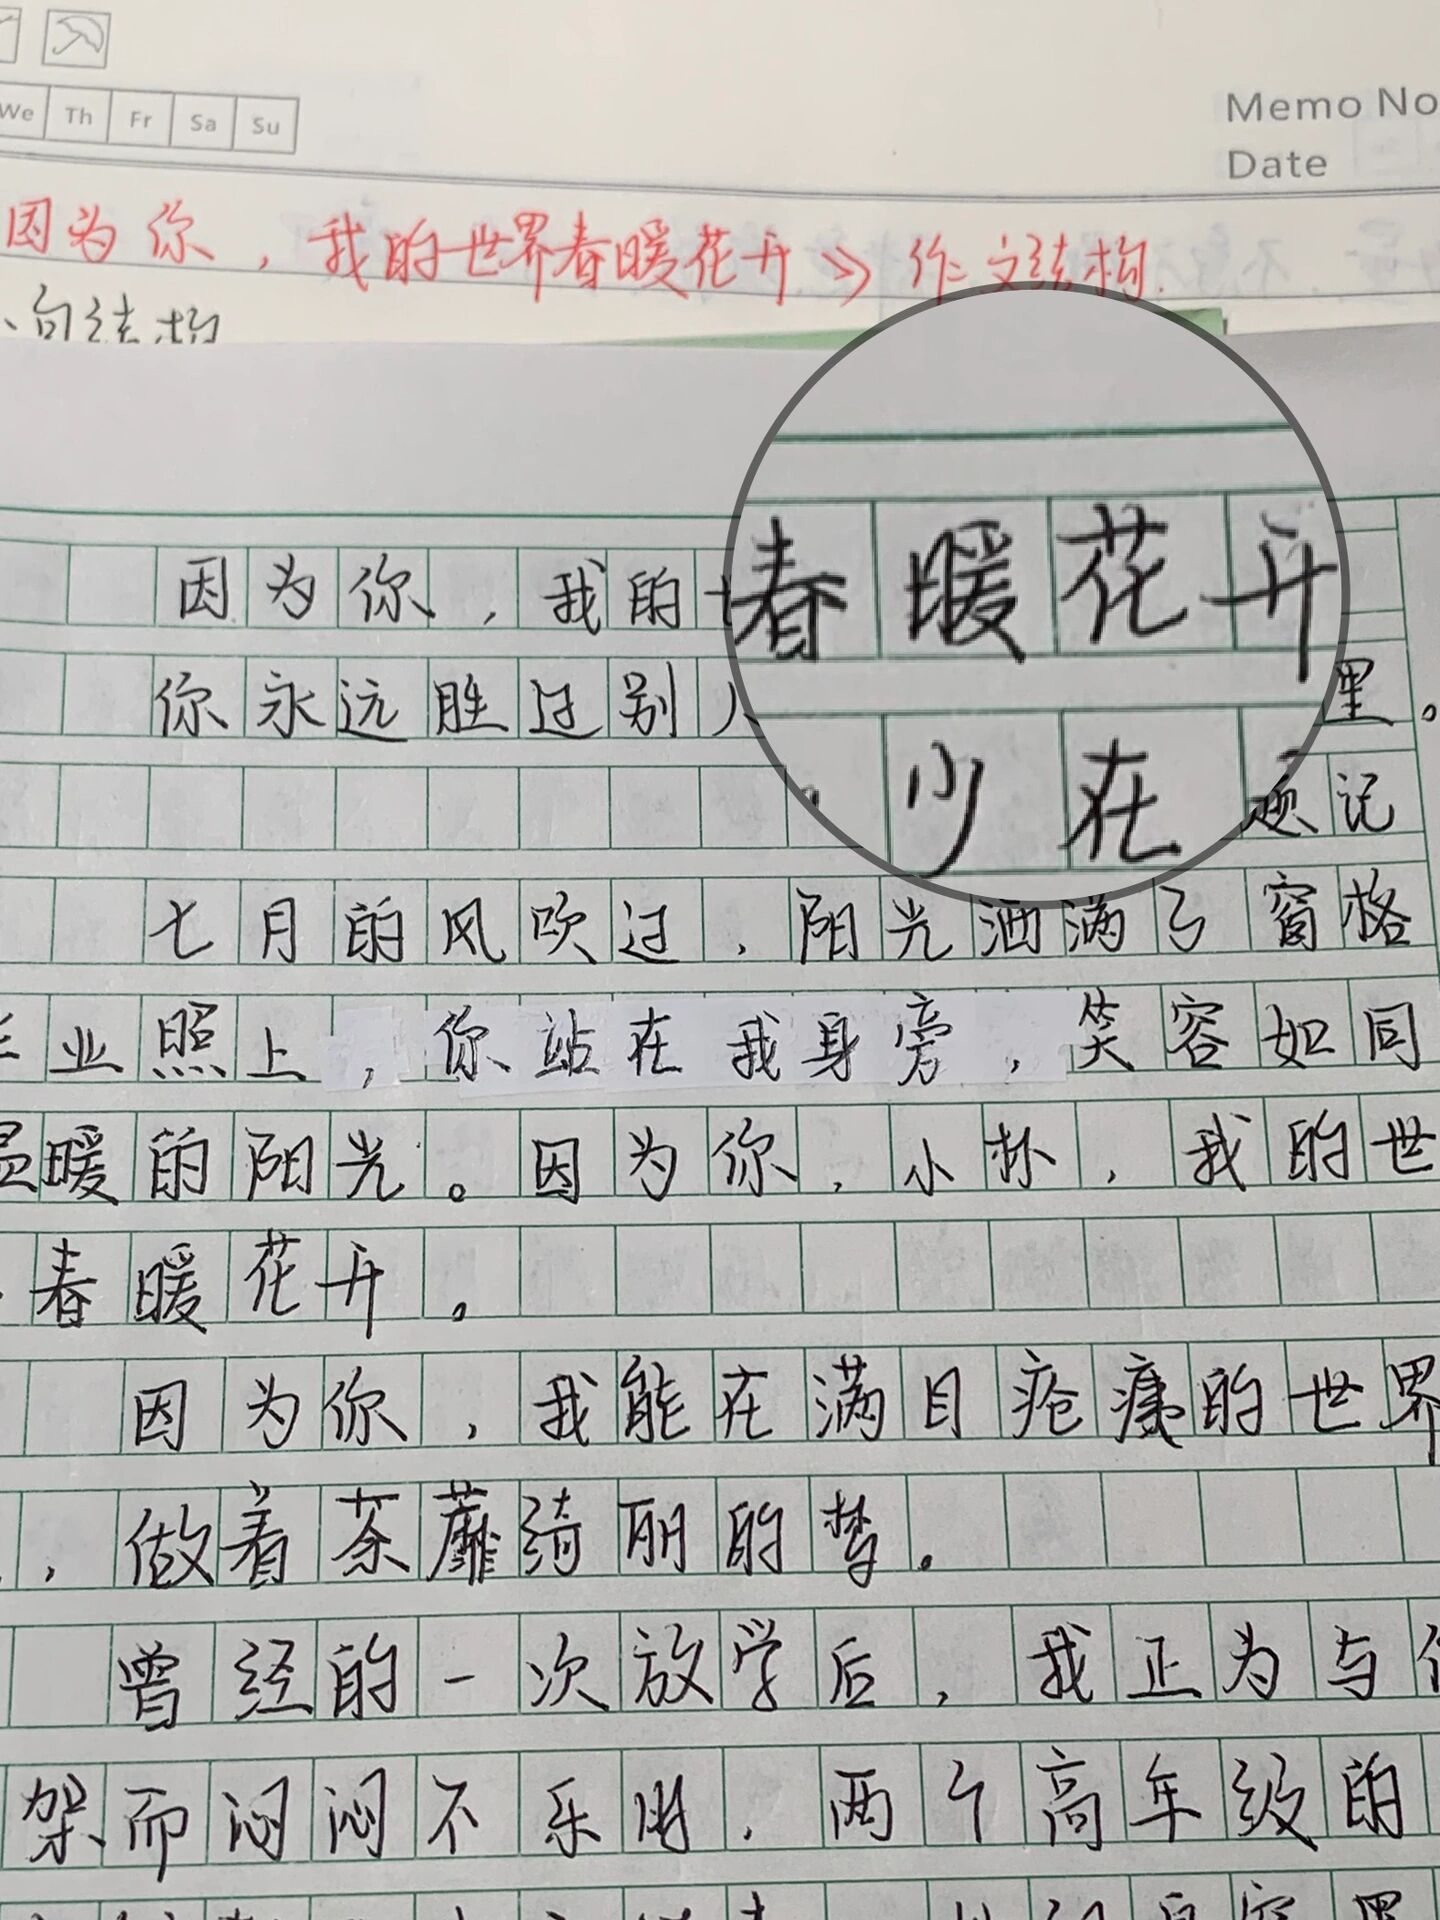 We Th Fr Sa Su
Memo No
Date
因为你，我的世界春暖花开》作文结构
句结构
因为你，我的
春暖花开
你永远胜过别
里。
少在
题记
七月的风吹过，阳光洒满了窗格
业照上，你站在我身旁，笑容如同
温暖的阳光。因为你，小林，我的世
春暖花开。
因为你，我能在满目疮痍的世界
，做着荼蘼绮丽的梦。
曾经的一次放学后，我正为与
架而闷闷不乐时，两个高年级的